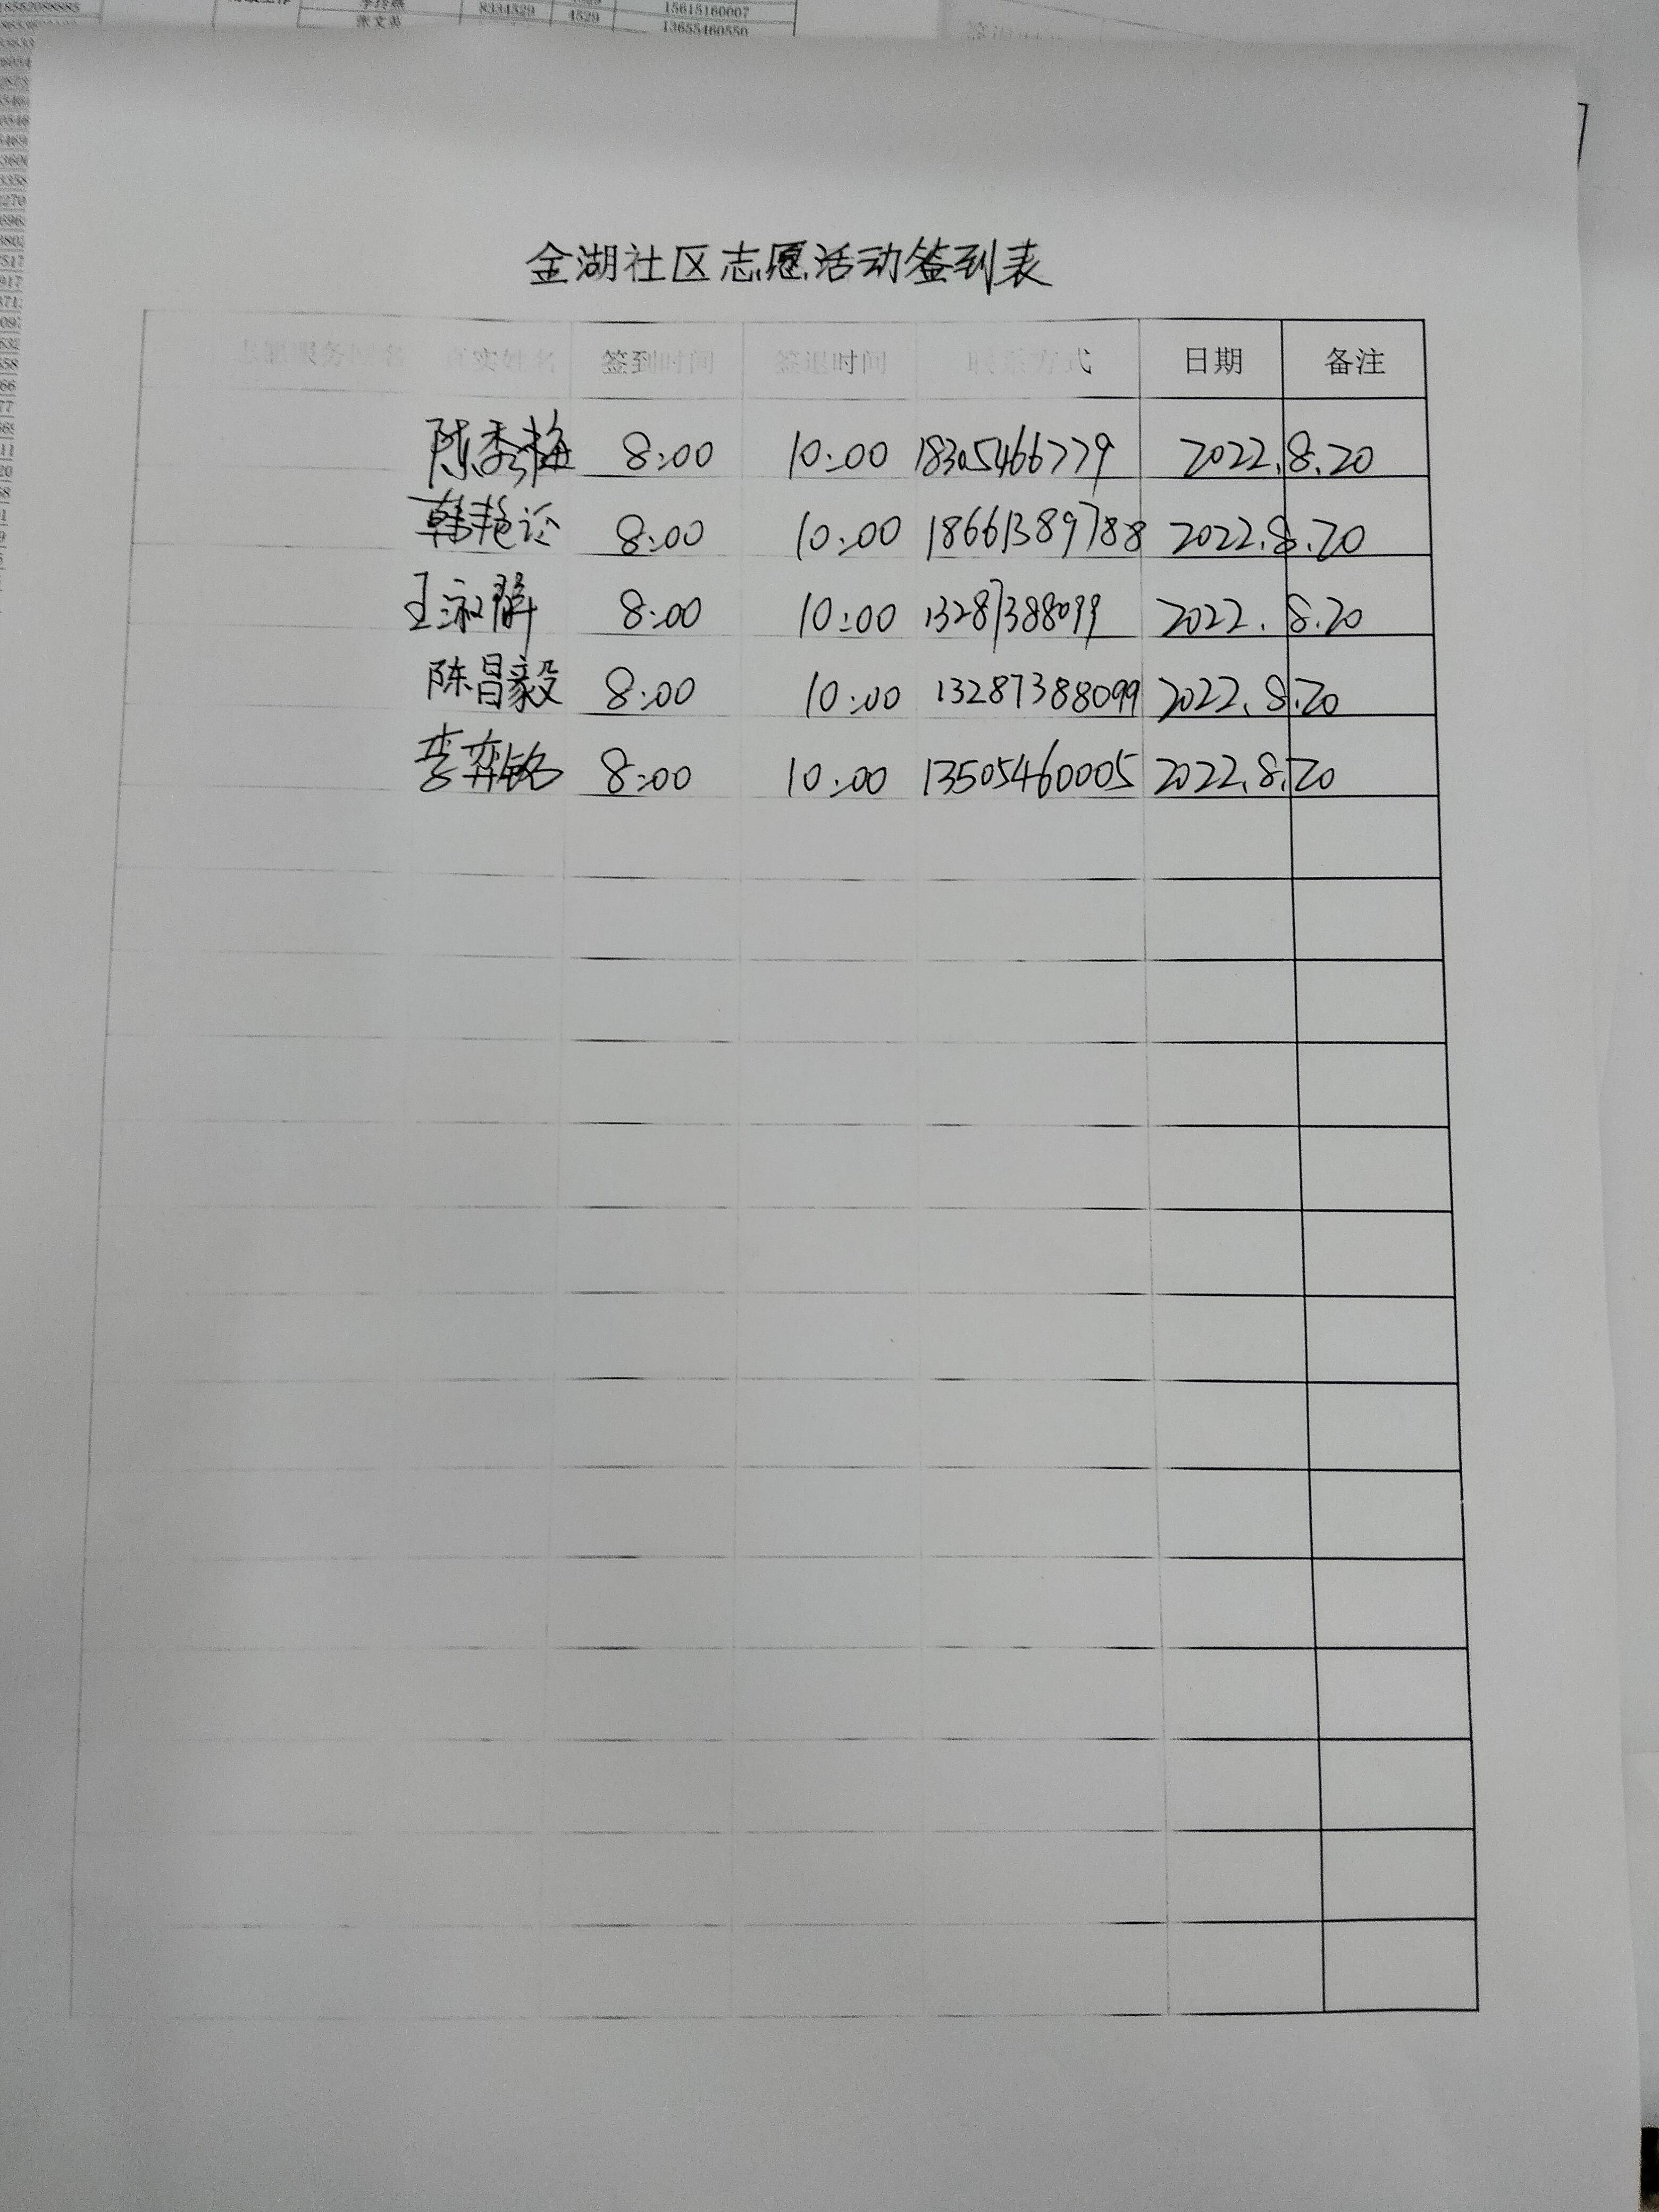 18562088885
8334529 4529 15615160007
张文英 13655460550
金湖社区志愿活动签到表
志愿服务 真实姓名 签到时间 签退时间 联系方式 日期 备注
陈秀梅 8:00 10:00 18305466779 2022.8.20
韩艳 8:00 10:00 18661389788 2022.8.20
王淑静 8:00 10:00 13287388099 2022.8.20
陈昌毅 8:00 10:00 13287388099 2022.8.20
李弈铭 8:00 10:00 13505460005 2022.8.20